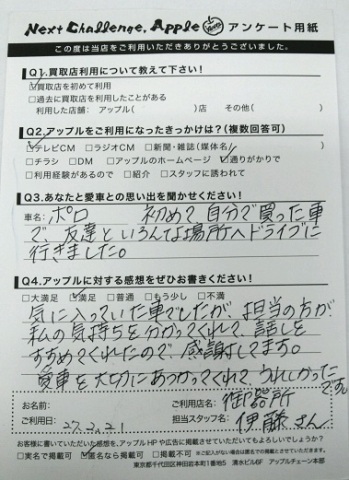 Next Challenge, Apple アンケート用紙
この度は当店をご利用いただきありがとうございました。
Q1.買取店利用について教えて下さい!
☑買取店を初めて利用
□過去に買取店を利用したことがある
利用した店舗: アップル( )店 その他( )
Q2.アップルをご利用になったきっかけは?(複数回答可)
☑テレビCM □ラジオCM □新聞・雑誌(媒体名 )
□チラシ □DM □アップルのホームページ ☑通りがかりで
□利用経験があるので □紹介 □スタッフに誘われて
Q3.あなたと愛車との思い出を聞かせください!
車名: ポロ 初めて、自分で買った車
で、友達といろんな場所へドライブに
行きました。
Q4.アップルに対する感想をぜひお書きください!
□大満足 ☑満足 □普通 □もう少し □不満
気に入っていた車でしたが、担当の方が
私の気持ちを分かってくれて、話しを
すすめてくれたので、感謝してます。
愛車を大切にあつかってくれて、うれしかった
です。
お名前: ご利用店名: 御器所
ご利用日: 27.2.21 担当スタッフ名: 伊藤さん
お客様に書いていただいた感想を、アップルHPや広告に掲載させていただいてもよろしいでしょうか?
□実名で掲載可 ☑匿名なら掲載可 □掲載不可 ※ご記入がない場合は匿名での掲載とさせていただきます。
東京都千代田区神田岩本町1番地5 清水ビル6F アップルチェーン本部